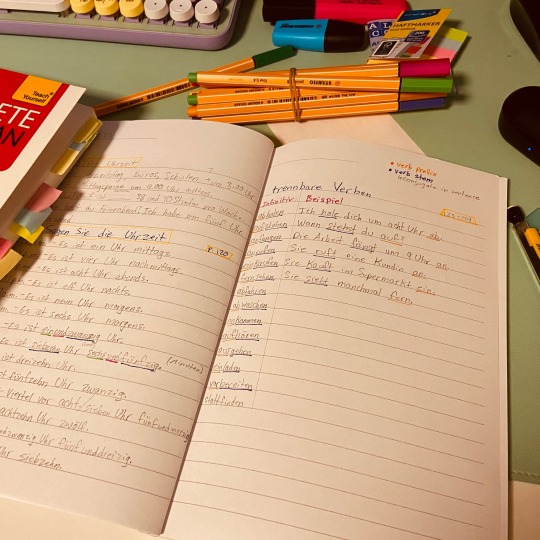 Teach
Yourself
ETE
AN
STABILO
HAFTMARKER
200
Uhrzeit
Büros, Schulen 8:00 Uhr
9:00 Uhr mittags.
38 und 40 Stunden pro Woche.
Feierabend? Ich habe um fünf Uhr
Sagen Sie die Uhrzeit
Es ist ein Uhr mittags.
Es ist vier Uhr nachmittags.
Es ist acht Uhr abends.
Es ist elf Uhr nachts.
Es ist neun Uhr morgens.
Es ist sechs Uhr morgens.
Es ist einundzwanzig Uhr.
Es ist siebzehn Uhr sechsundfünfzig. (Minuten)
ist dreizehn Uhr.
fünfzehn Uhr zwanzig.
Viertel vor acht, sieben Uhr
achtzehn Uhr zwölf.
Uhr fünfunddreizig.
Uhr siebzehn.
• verb prefix
• verb stem
↳conjugate in sentence
trennbare Verben
Infinitiv Beispiel
abholen Ich hole dich um acht Uhr ab.
aufstehen Wann stehst du auf?
anfangen Die Arbeit fängt um 9 Uhr an.
anrufen Sie ruft eine Kundin an.
einkaufen Sie kauft im Supermarkt ein.
fernsehen Sie sieht manchmal fern.
abfahren
abwaschen
ankommen
aufhören
ausgehen
einladen
vorbereiten
stattfinden